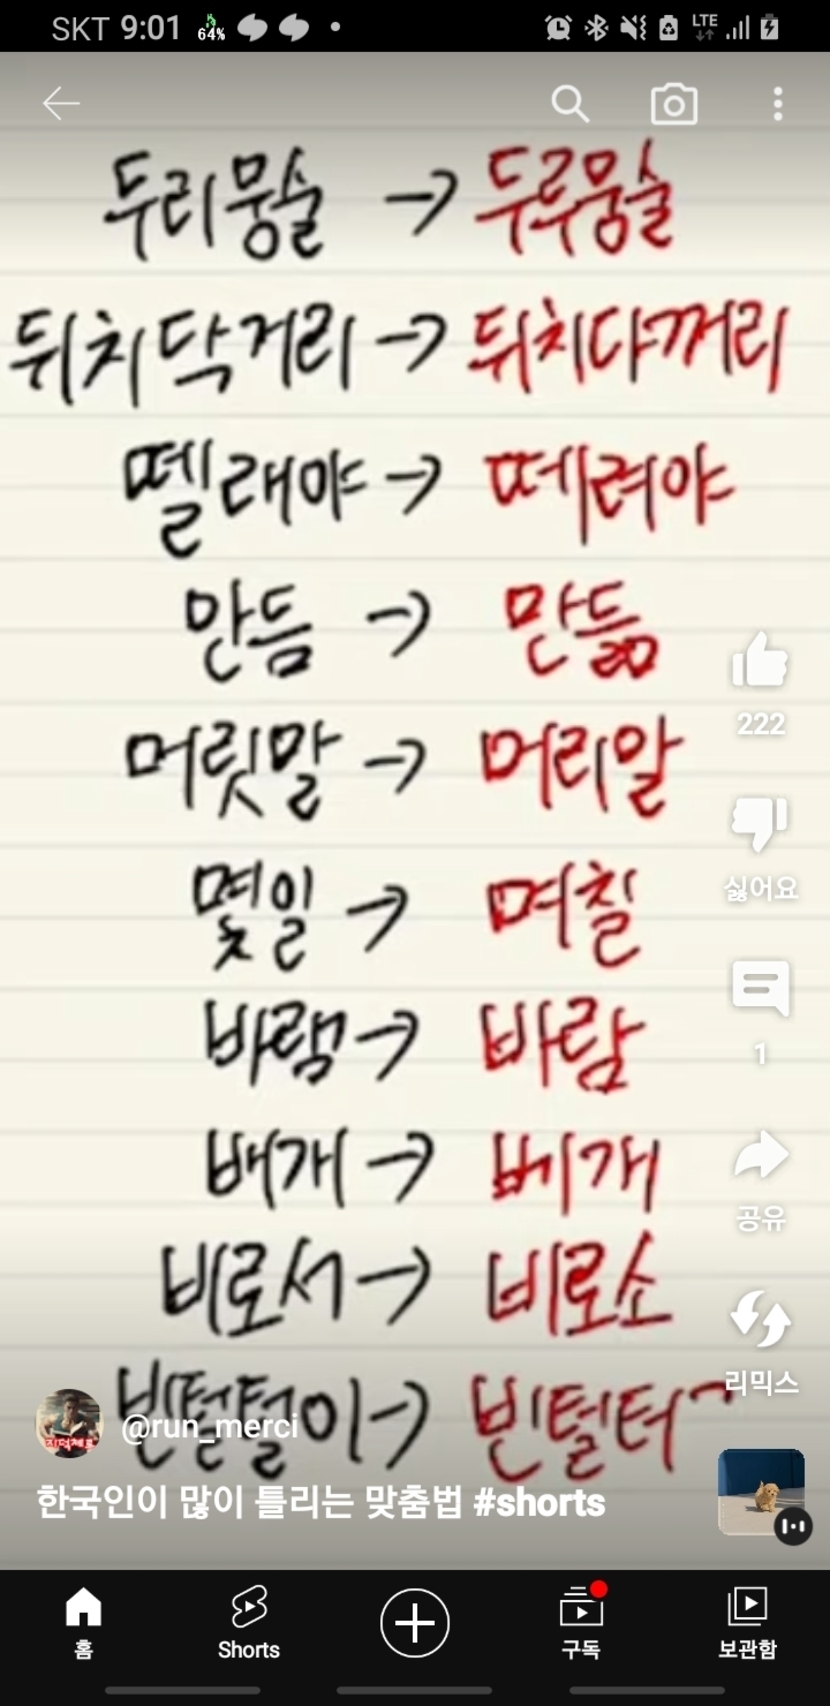 SKT 9:01 64% LTE
두리뭉술 → 두루뭉술
뒤치닥거리 → 뒤치다꺼리
뗄래야 → 떼려야
만듬 → 만듦
222
머릿말 → 머리말
싫어요
몇일 → 며칠
1
바램 → 바람
배개 → 베개
공유
비로서 → 비로소
리믹스
빈털털이 → 빈털터
@run_merci
한국인이 많이 틀리는 맞춤법 #shorts
홈 Shorts 구독 보관함